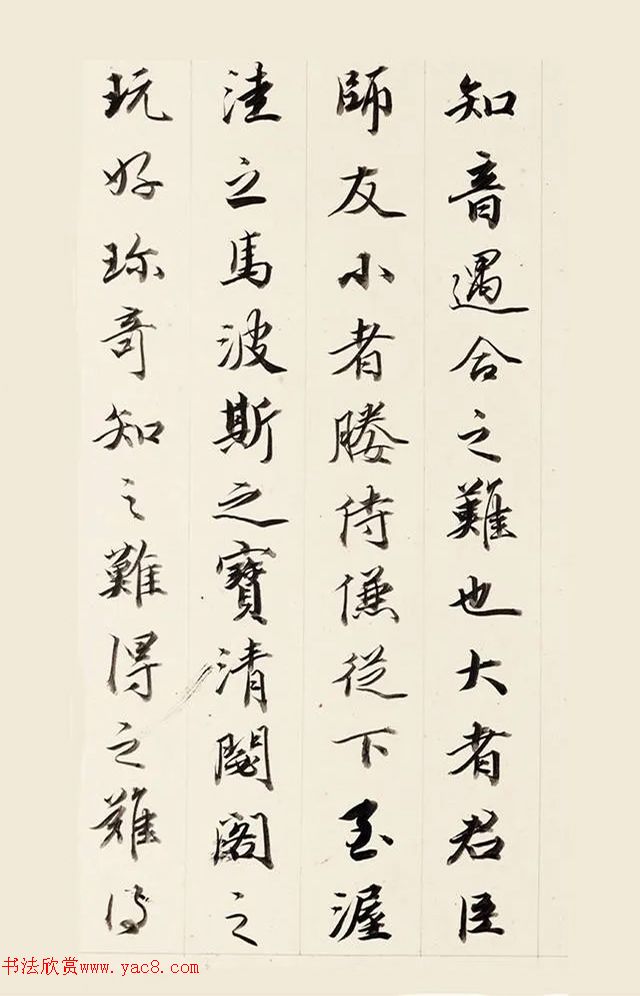 知音遇合之難也大者君臣
師友小者媵侍傔從下至渥
洼之馬波斯之寶清閟閣之
玩好珎奇知之難得之難得
书法欣赏www.yac8.com